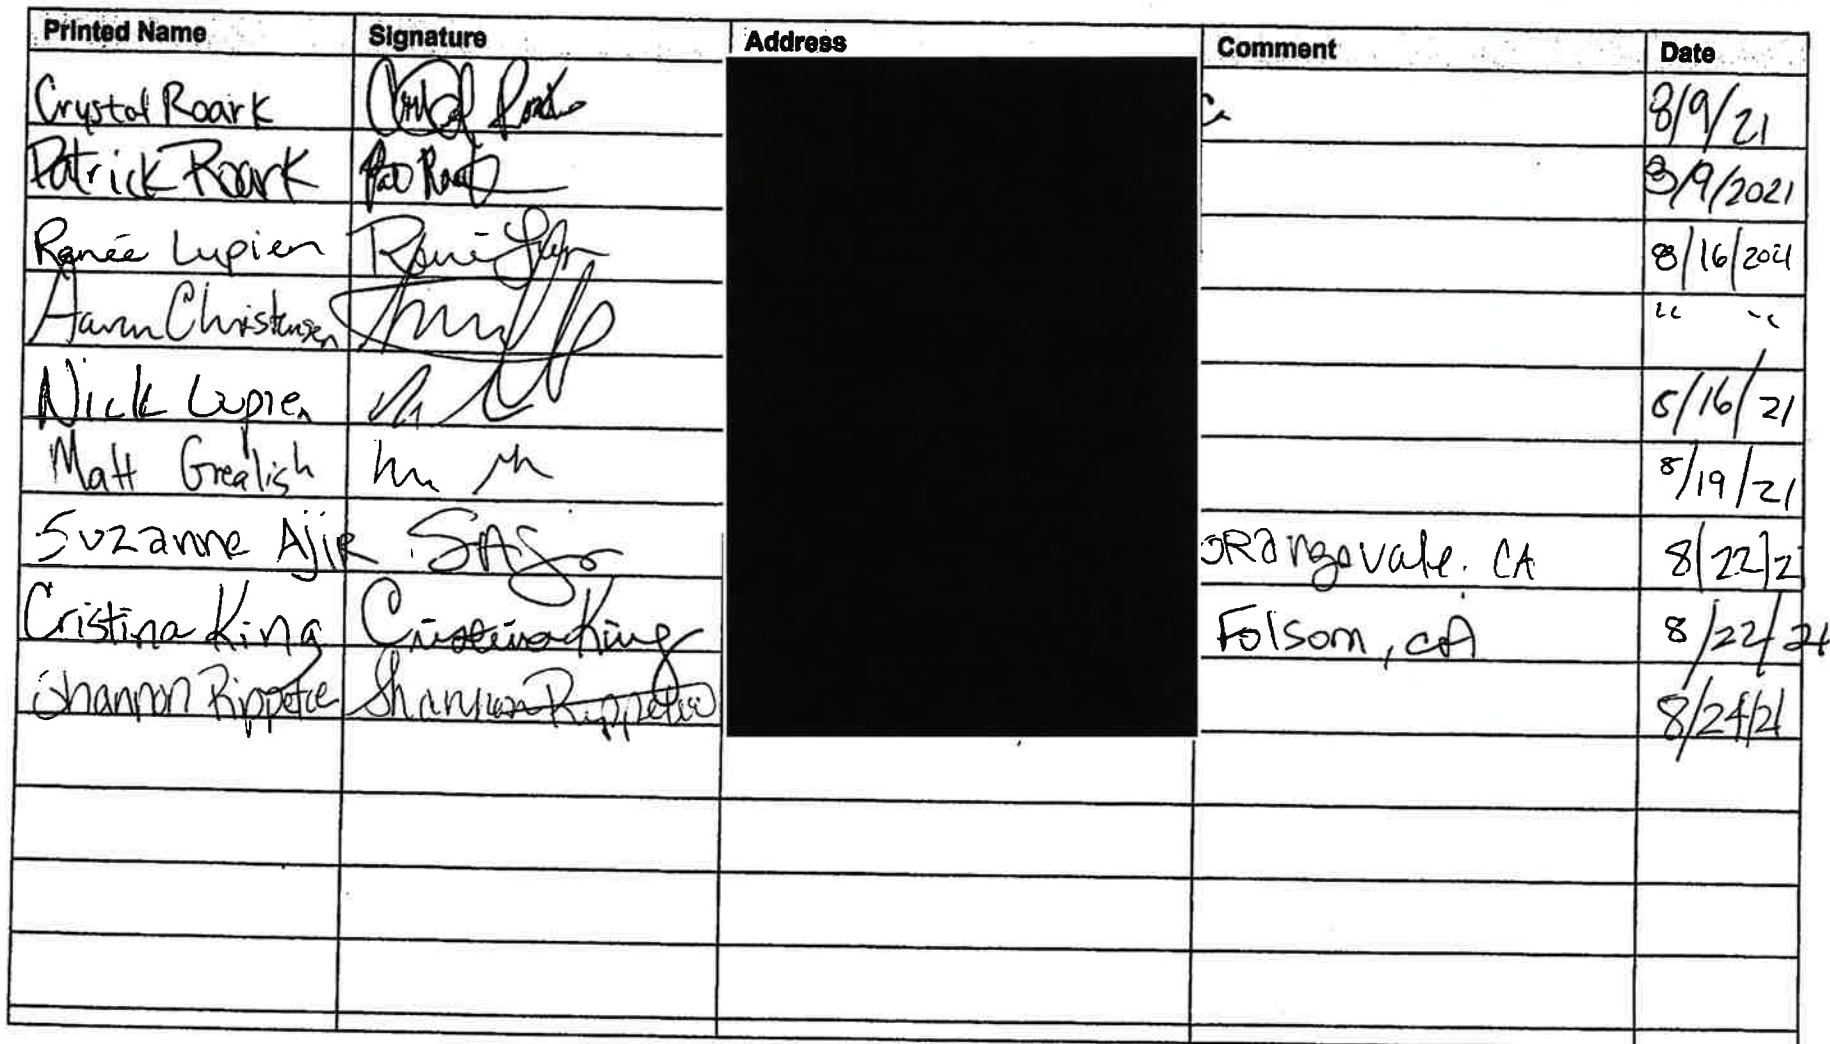 Printed Name Signature Address Comment Date
Crystal Roark 8/9/21
Patrick Roark Pat Roark 8/9/2021
Renée Lupien Renée 8/16/2021
Aaron Christensen " "
Nick Lupien 8/16/21
Matt Grealish 8/19/21
Suzanne Ajir SAjir ORangevale. CA 8/22/2
Cristina King Cristina King Folsom, CA 8/22/21
Shannon Rippetoe Shannon Rippetoe 8/24/21